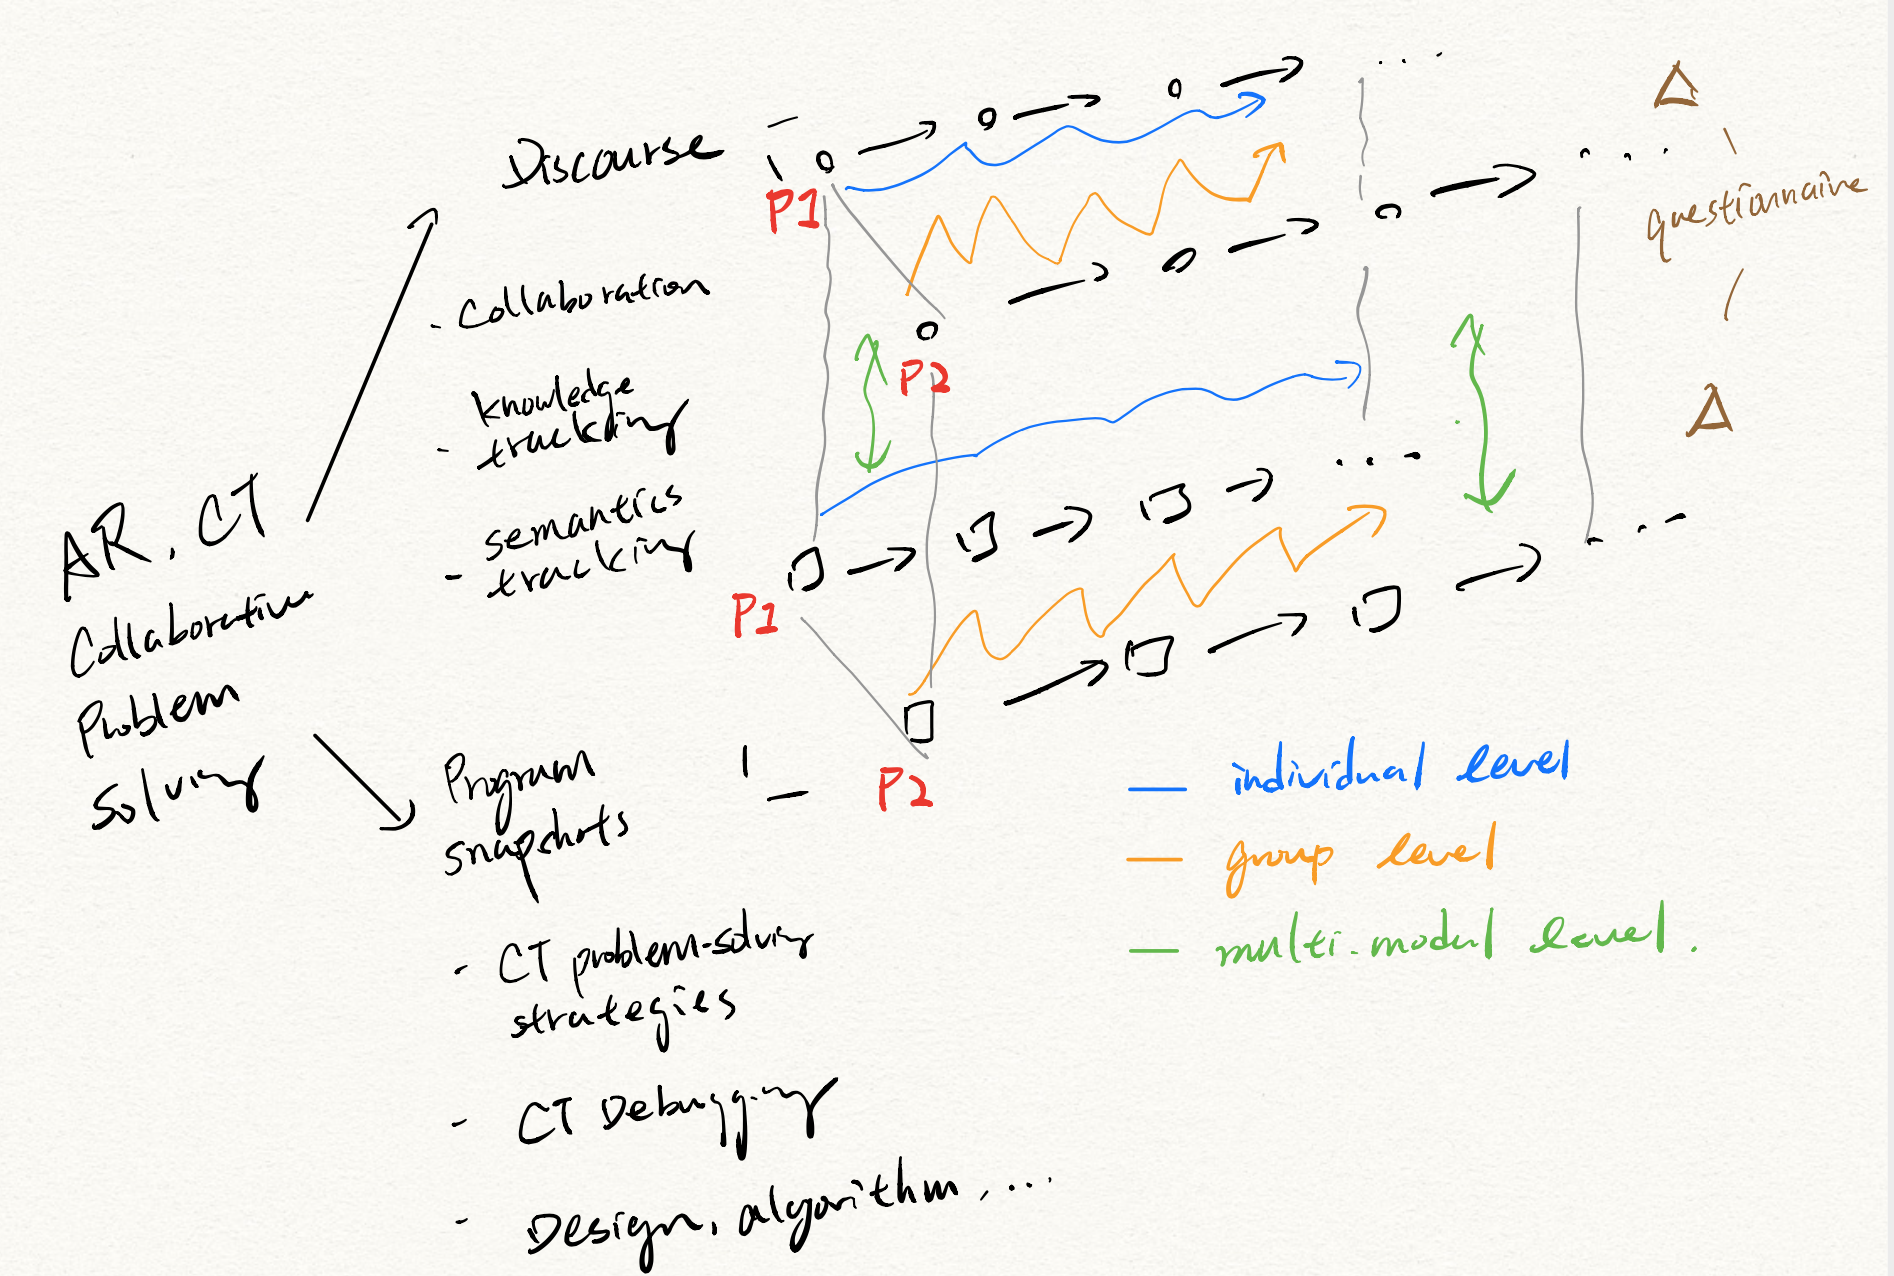 AR, CT
Collaborative
Problem
Solving
Discourse
- Collaboration
knowledge
- trackding
semantics
- tracking
Program
snapshots
- CT problem-solving
strategies
- CT Debugging
- Design, algorithm, ...
P1
P2
P1
P2
...
...
...
...
questionnaire
individual level
group level
multi-modal level.